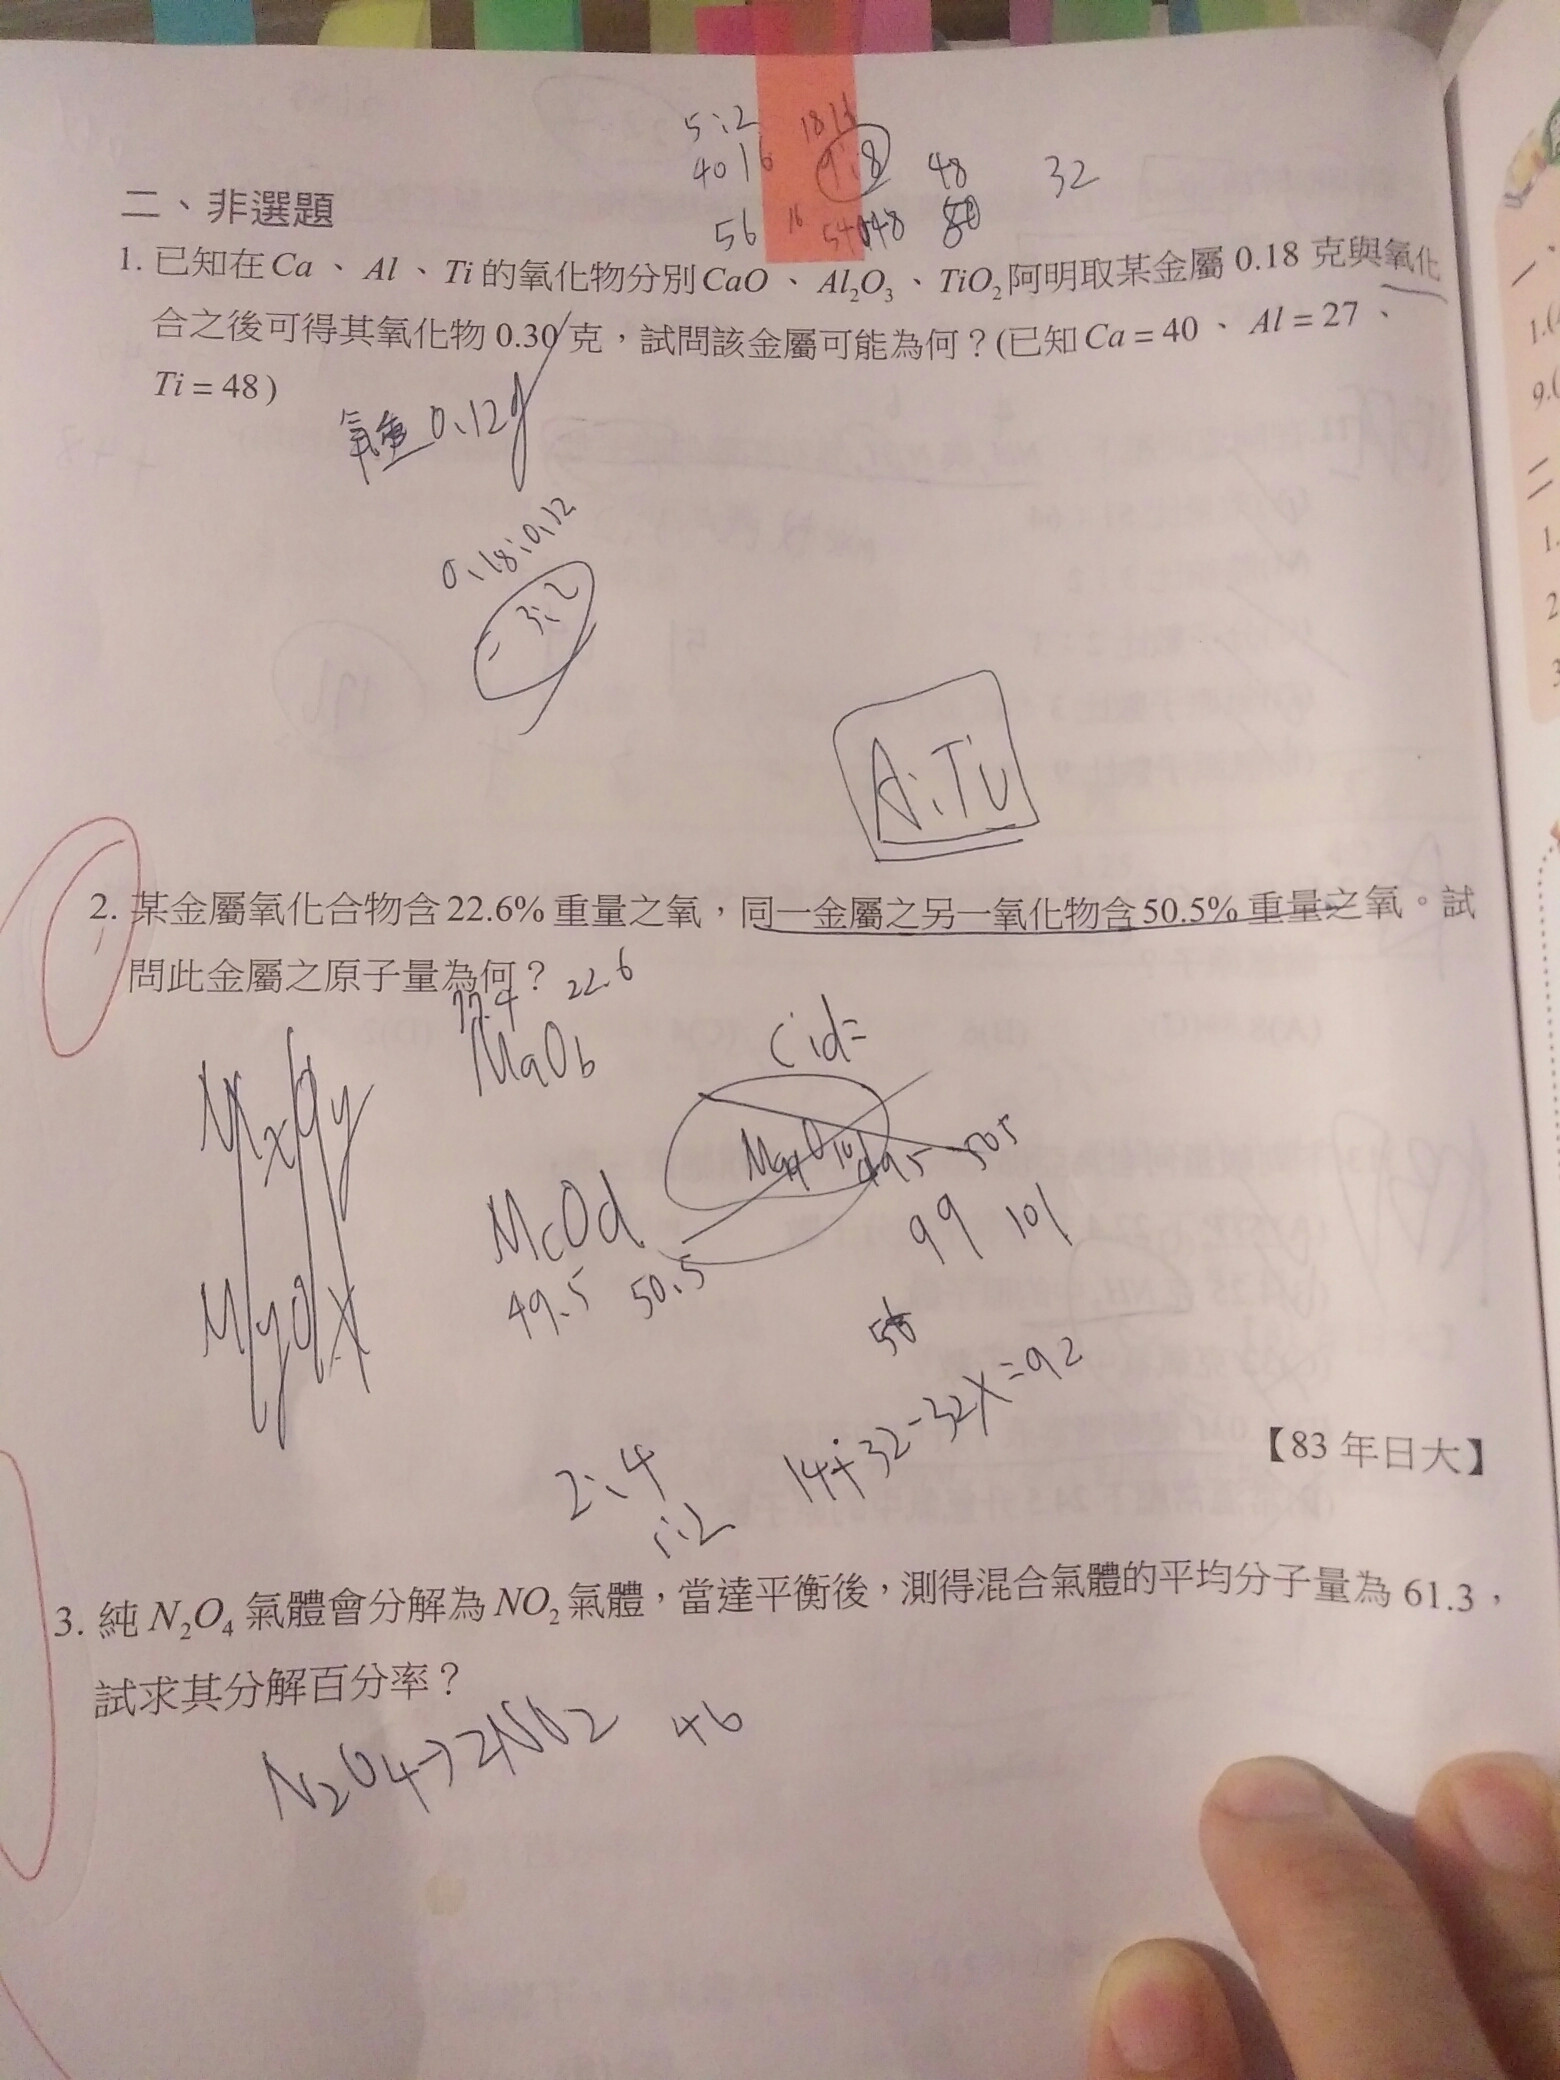 5:2
40 16 9:8 48 32
56 16 54 48 80
二、非選題
1. 已知在Ca、Al、Ti的氧化物分別CaO、Al₂O₃、TiO₂阿明取某金屬0.18克與氧化
合之後可得其氧化物0.30克，試問該金屬可能為何？(已知Ca = 40、Al = 27、
Ti = 48)
氧重0.12g
0.18:0.12
= 3:2
2. 某金屬氧化合物含22.6%重量之氧，同一金屬之另一氧化物含50.5%重量之氧。試
問此金屬之原子量為何？
77.4 22.6
MaOb
c:d=
MxOy
McOd
49.5 50.5
49.5 50.5
99 101
MyOx
56
14+32-32x=92
【83年日大】
2:4
1:2
3. 純N₂O₄氣體會分解為NO₂氣體，當達平衡後，測得混合氣體的平均分子量為61.3，
試求其分解百分率？
N₂O₄→2NO₂ 46
1.
9.
二
1.
2
3